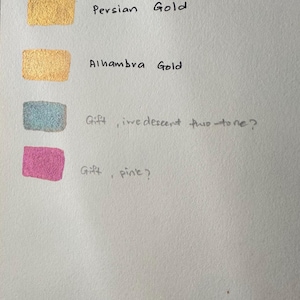 Persian Gold
Alhambra Gold
Gift, iredescent two-tone?
Gift, pink?